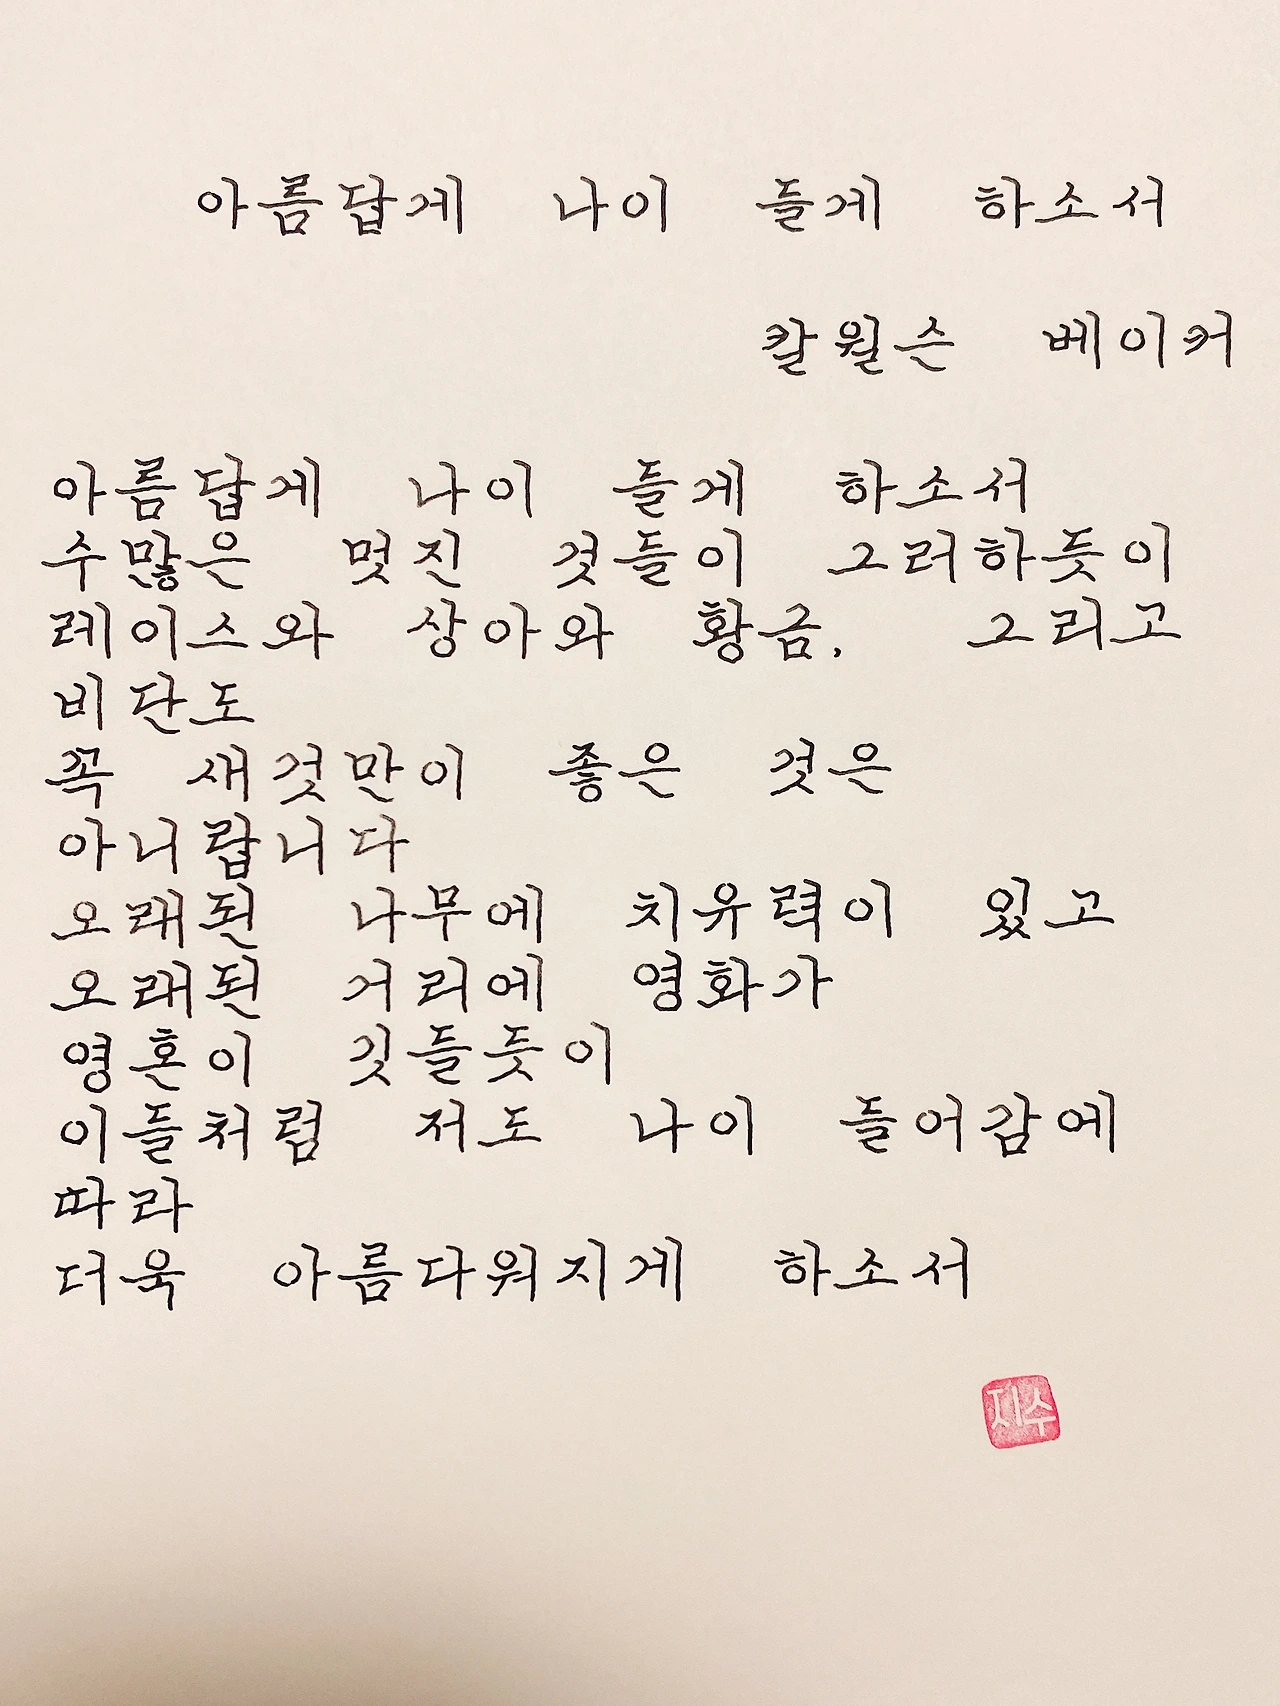 아름답게 나이 들게 하소서
칼윌슨 베이커
아름답게 나이 들게 하소서
수많은 멋진 것들이 그러하듯이
레이스와 상아와 황금, 그리고
비단도
꼭 새것만이 좋은 것은
아니랍니다
오래된 나무에 치유력이 있고
오래된 거리에 영화가
영혼이 깃들듯이
이들처럼 저도 나이 들어감에
따라
더욱 아름다워지게 하소서
지수